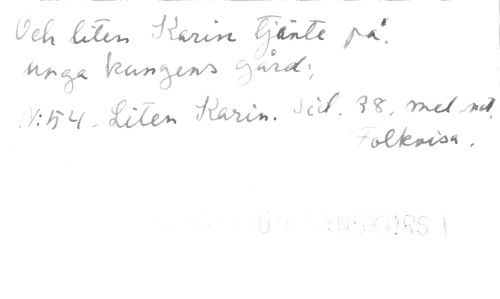 Och liten Karin tjänte på
unga kungens gård;
N:54. Liten Karin. Sid. 38, med not.
Folkvisa.